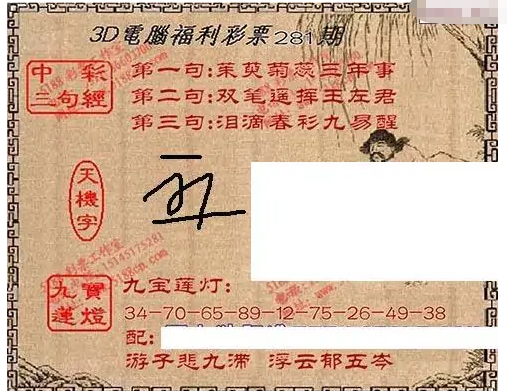 3D電腦福利彩票281期
中彩三句經
第一句:茱萸菊蕊三年事
第二句:双笔遥挥王左君
第三句:泪滴春衫九易醒
天機字
九寶蓮燈
九宝莲灯:
34-70-65-89-12-75-26-49-38
配:
游子悲九滞 浮云郁五岑